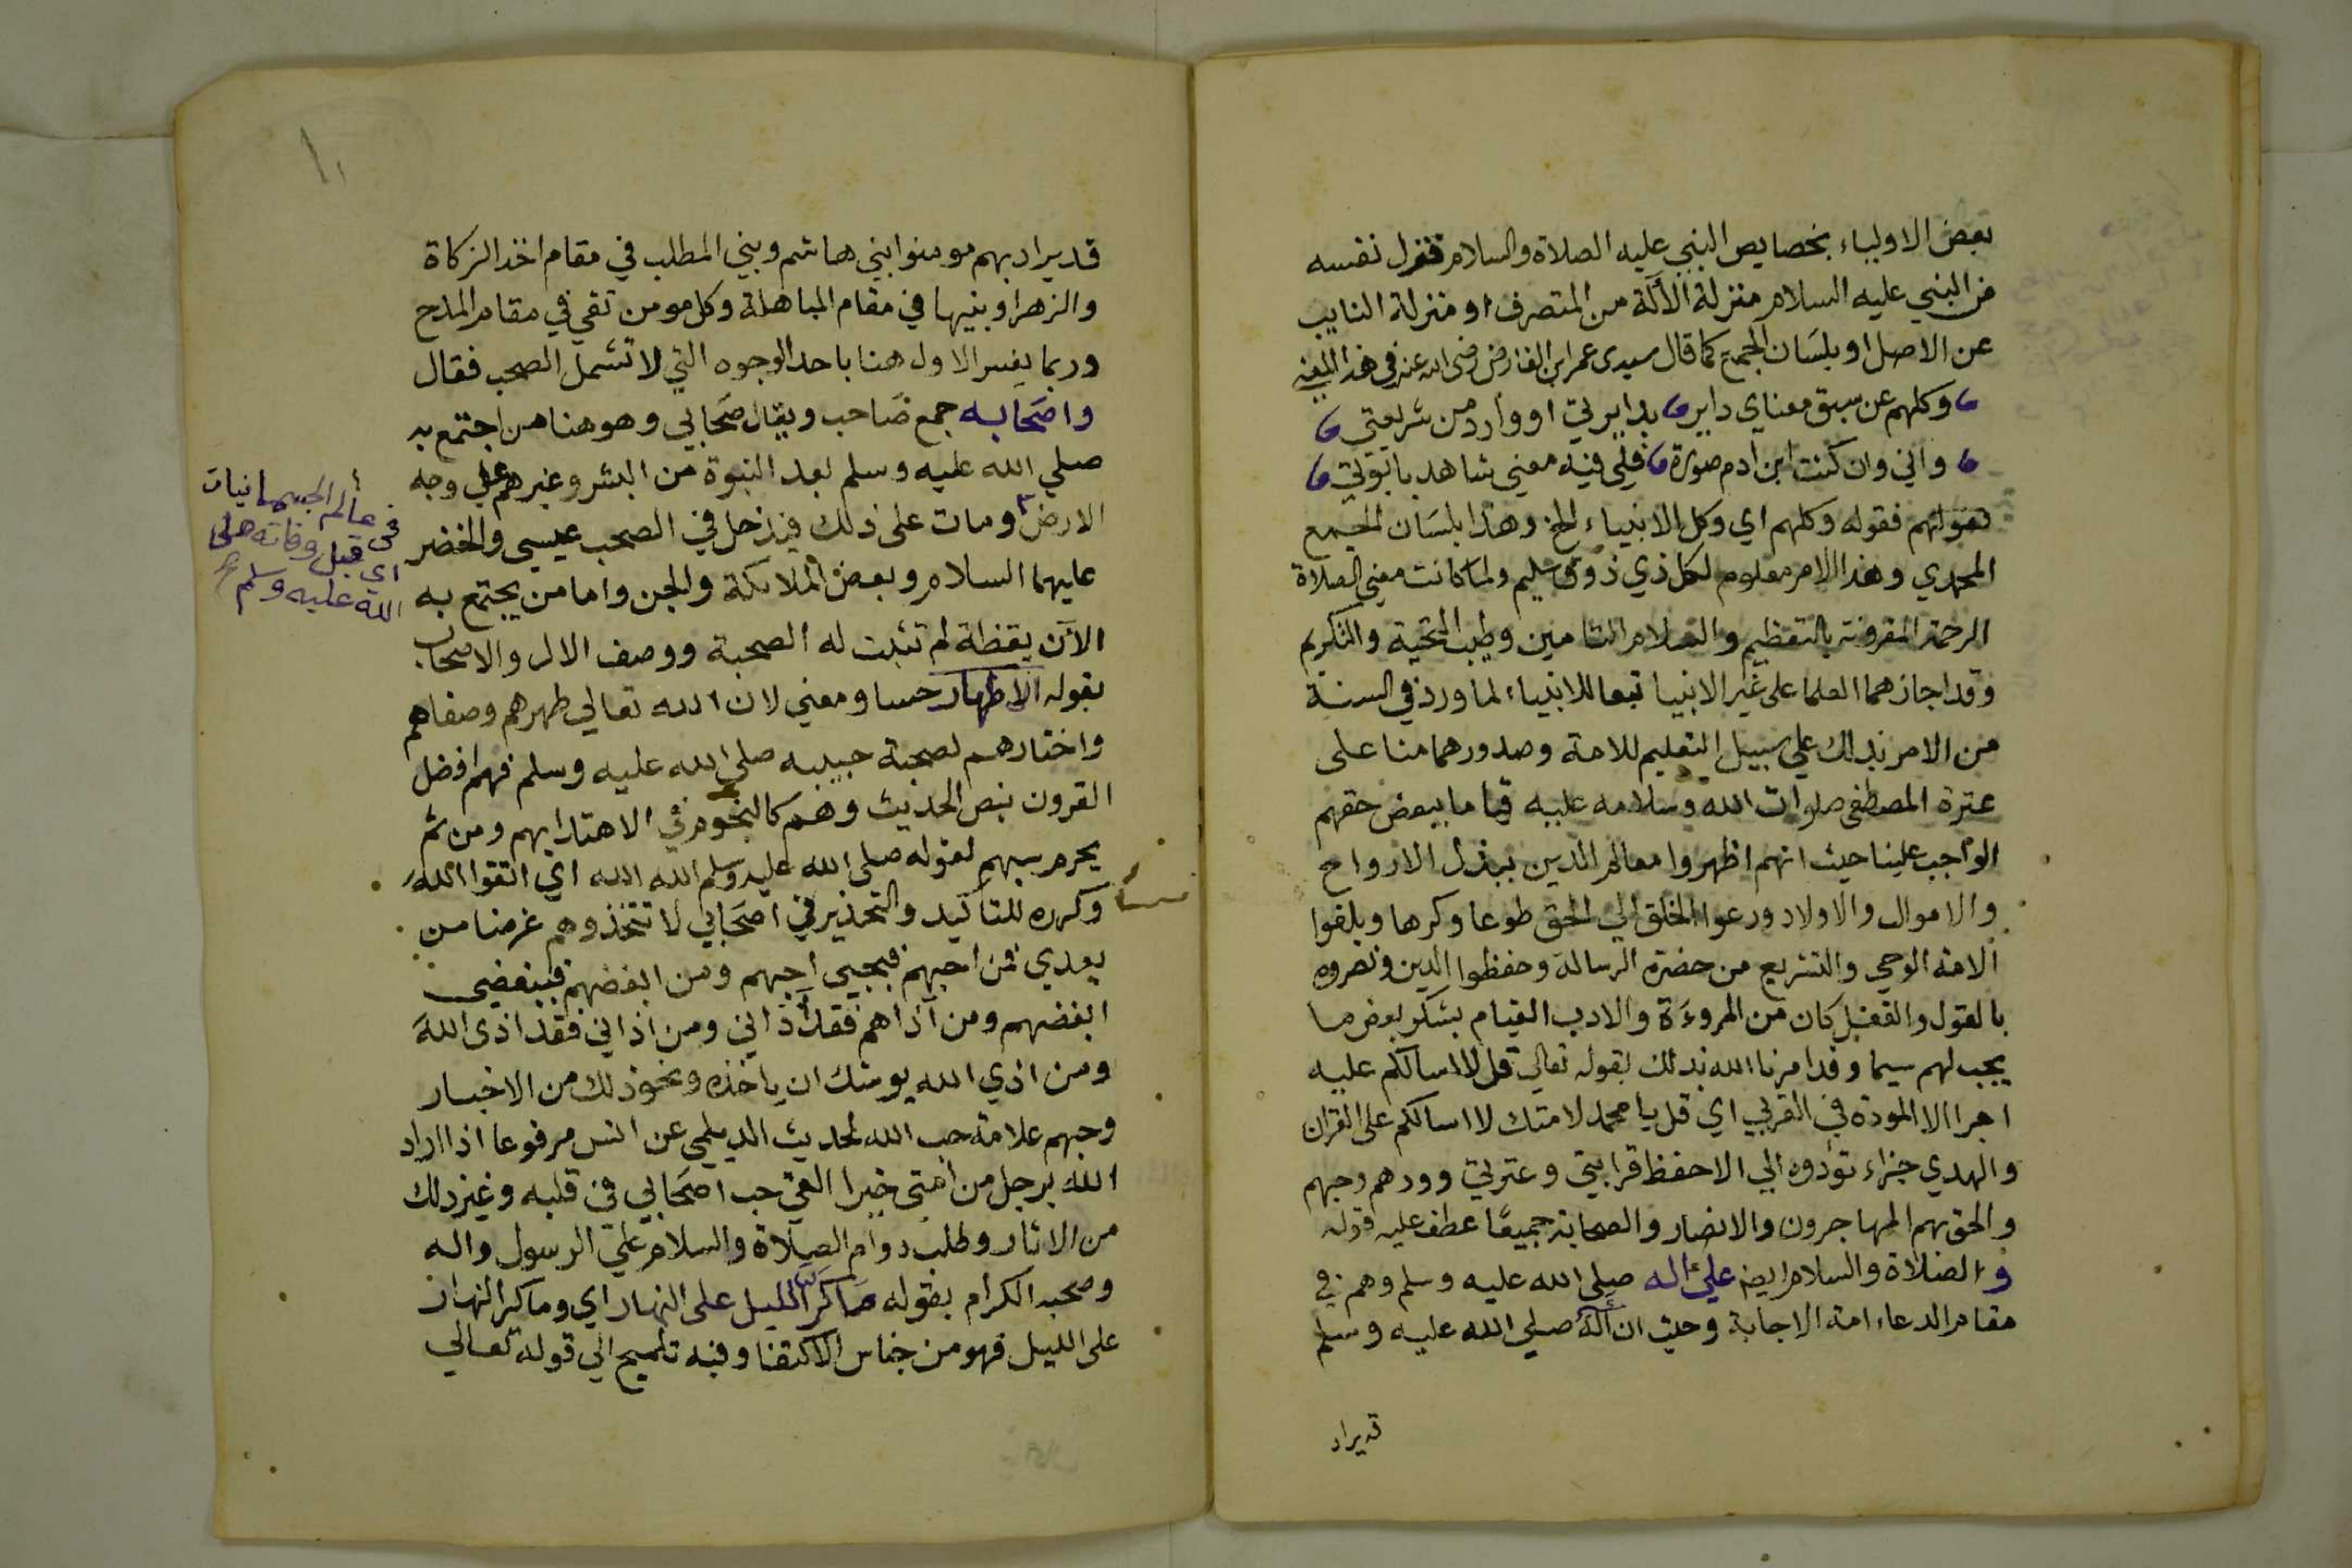 بعض الاولياء بخصايص النبي عليه الصلاة والسلام فنزل نفسه
من النبي عليه السلام منزلة الآلة من المتصرف او منزلة النايب
عن الاصل او بلسان الجمع كما قال سيدى عمر ابن الفارض رضى الله عنه في هذا المعنى
وكلهم عن سبق معناي داير بدايرتي او وارد من شريعتي
واني وان كنت ابن ادم صورة فلي فيه معني شاهد بابوتي
فقوله وكلهم اي وكل الانبياء الخ وهذا بلسان الجمع
المحمدي وهذا الامر معلوم لكل ذي ذوق سليم ولما كانت معني الصلاة
الرحمة المقرونة بالتعظيم والسلام التامين وطيب التحية والتكريم
وقد اجازهما العلما على غير الانبيا تبعا للانبياء لما ورد في السنة
من الامر بذلك علي سبيل التعليم للامة وصدورهما منا على
عترة المصطفى صلوات الله وسلامه عليه قياما ببعض حقهم
الواجب علينا حيث انهم اظهروا معالم الدين ببذل الارواح
والاموال والاولاد ودعوا الخلق الي الحق طوعا وكرها وبلغوا
الامة الوحي والتشريع من حضرة الرسالة وحفظوا الدين ونصروه
بالقول والفعل كان من المروءة والادب القيام بشكر بعض ما
يجب لهم سيما وقد امرنا الله بذلك بقوله تعالي قل لا اسالكم عليه
اجرا الا المودة في القربي اي قل يا محمد لامتك لا اسالكم على القران
والهدي جزاء تؤدوه الي الا حفظ قرابتي وعترتي وودهم وحبهم
والحق بهم المهاجرون والانصار والصحابة جميعًا عطف عليه قوله
و الصلاة والسلام ايضا علي اله صلى الله عليه وسلم وهم في
مقام الدعاء امة الاجابة وحيث ان آله صلي الله عليه وسلم
قد يراد
قد يراد بهم مومنوا بني هاشم وبني المطلب في مقام اخذ الزكاة
والزهرا وبنيها في مقام المباهلة وكل مومن تقي في مقام المدح
وربما يفسر الاول هنا باحد الوجوه التي لا تشمل الصحب فقال
واصحابه جمع صاحب ويقال صحابي وهو هنا من اجتمع به
صلي الله عليه وسلم بعد النبوة من البشر وغيرهم علي وجه
الارض ومات على ذلك فيدخل في الصحب عيسي والخضر
عليهما السلام وبعض الملائكة والجن واما من يجتمع به
الآن يقظة لم تثبت له الصحبة ووصف الال والاصحاب
بقوله الاطهار حسا ومعني لان الله تعالي طهرهم وصفاهم
واختارهم لصحبة حبيبه صلى الله عليه وسلم فهم افضل
القرون بنص الحديث وهم كالنجوم في الاهتدا بهم ومن ثم
يحرم سبهم لقوله صلى الله عليه وسلم الله الله اي اتقوا الله
وكرره للتاكيد والتحذير في اصحابي لا تتخذوهم غرضا من
بعدي فمن احبهم فبحبي احبهم ومن ابغضهم فببغضي
ابغضهم ومن آذاهم فقد آذاني ومن اذاني فقد اذى الله
ومن اذي الله يوشك ان ياخذه ونحو ذلك من الاخبار
وحبهم علامة حب الله لحديث الديلمي عن انس مرفوعا اذا اراد
الله برجل من امتي خيرا القي حب اصحابي في قلبه وغير ذلك
من الاثار وطلب دوام الصلاة والسلام علي الرسول واله
وصحبه الكرام بقوله ما كر الليل على النهار اي وما كر النهار
على الليل فهو من جناس الاكتفا وفيه تلميح الي قوله تعالي
في عالم الجسمانيات
اي قبل وفاته صلى
الله عليه وسلم